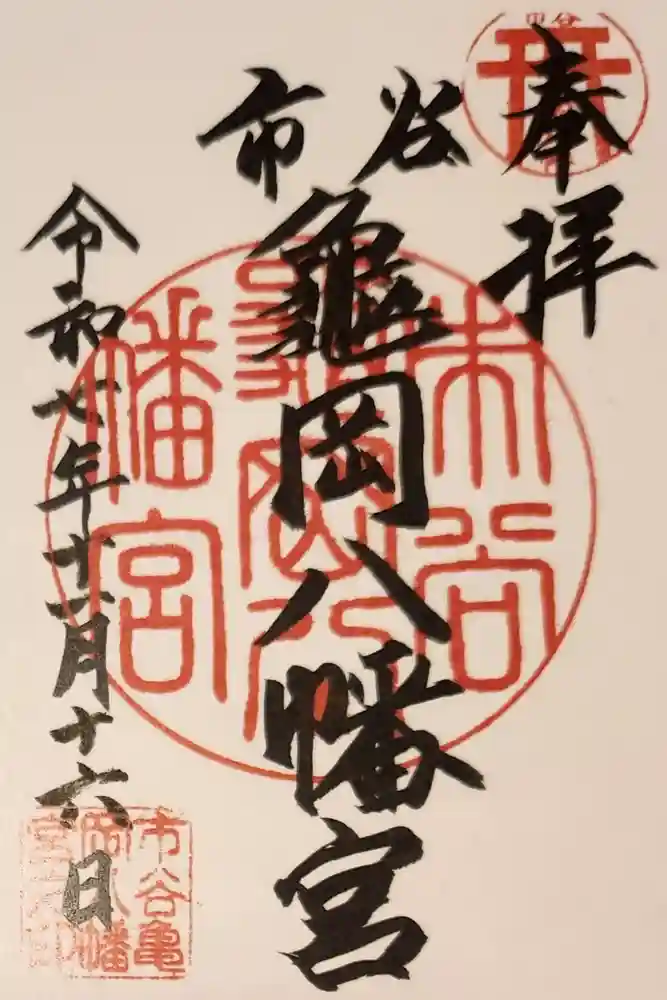 奉拝
市谷
龜岡八幡宮
令和七年十一月十六日
市谷
龜岡八
幡宮
市谷亀
岡八幡
宮之印